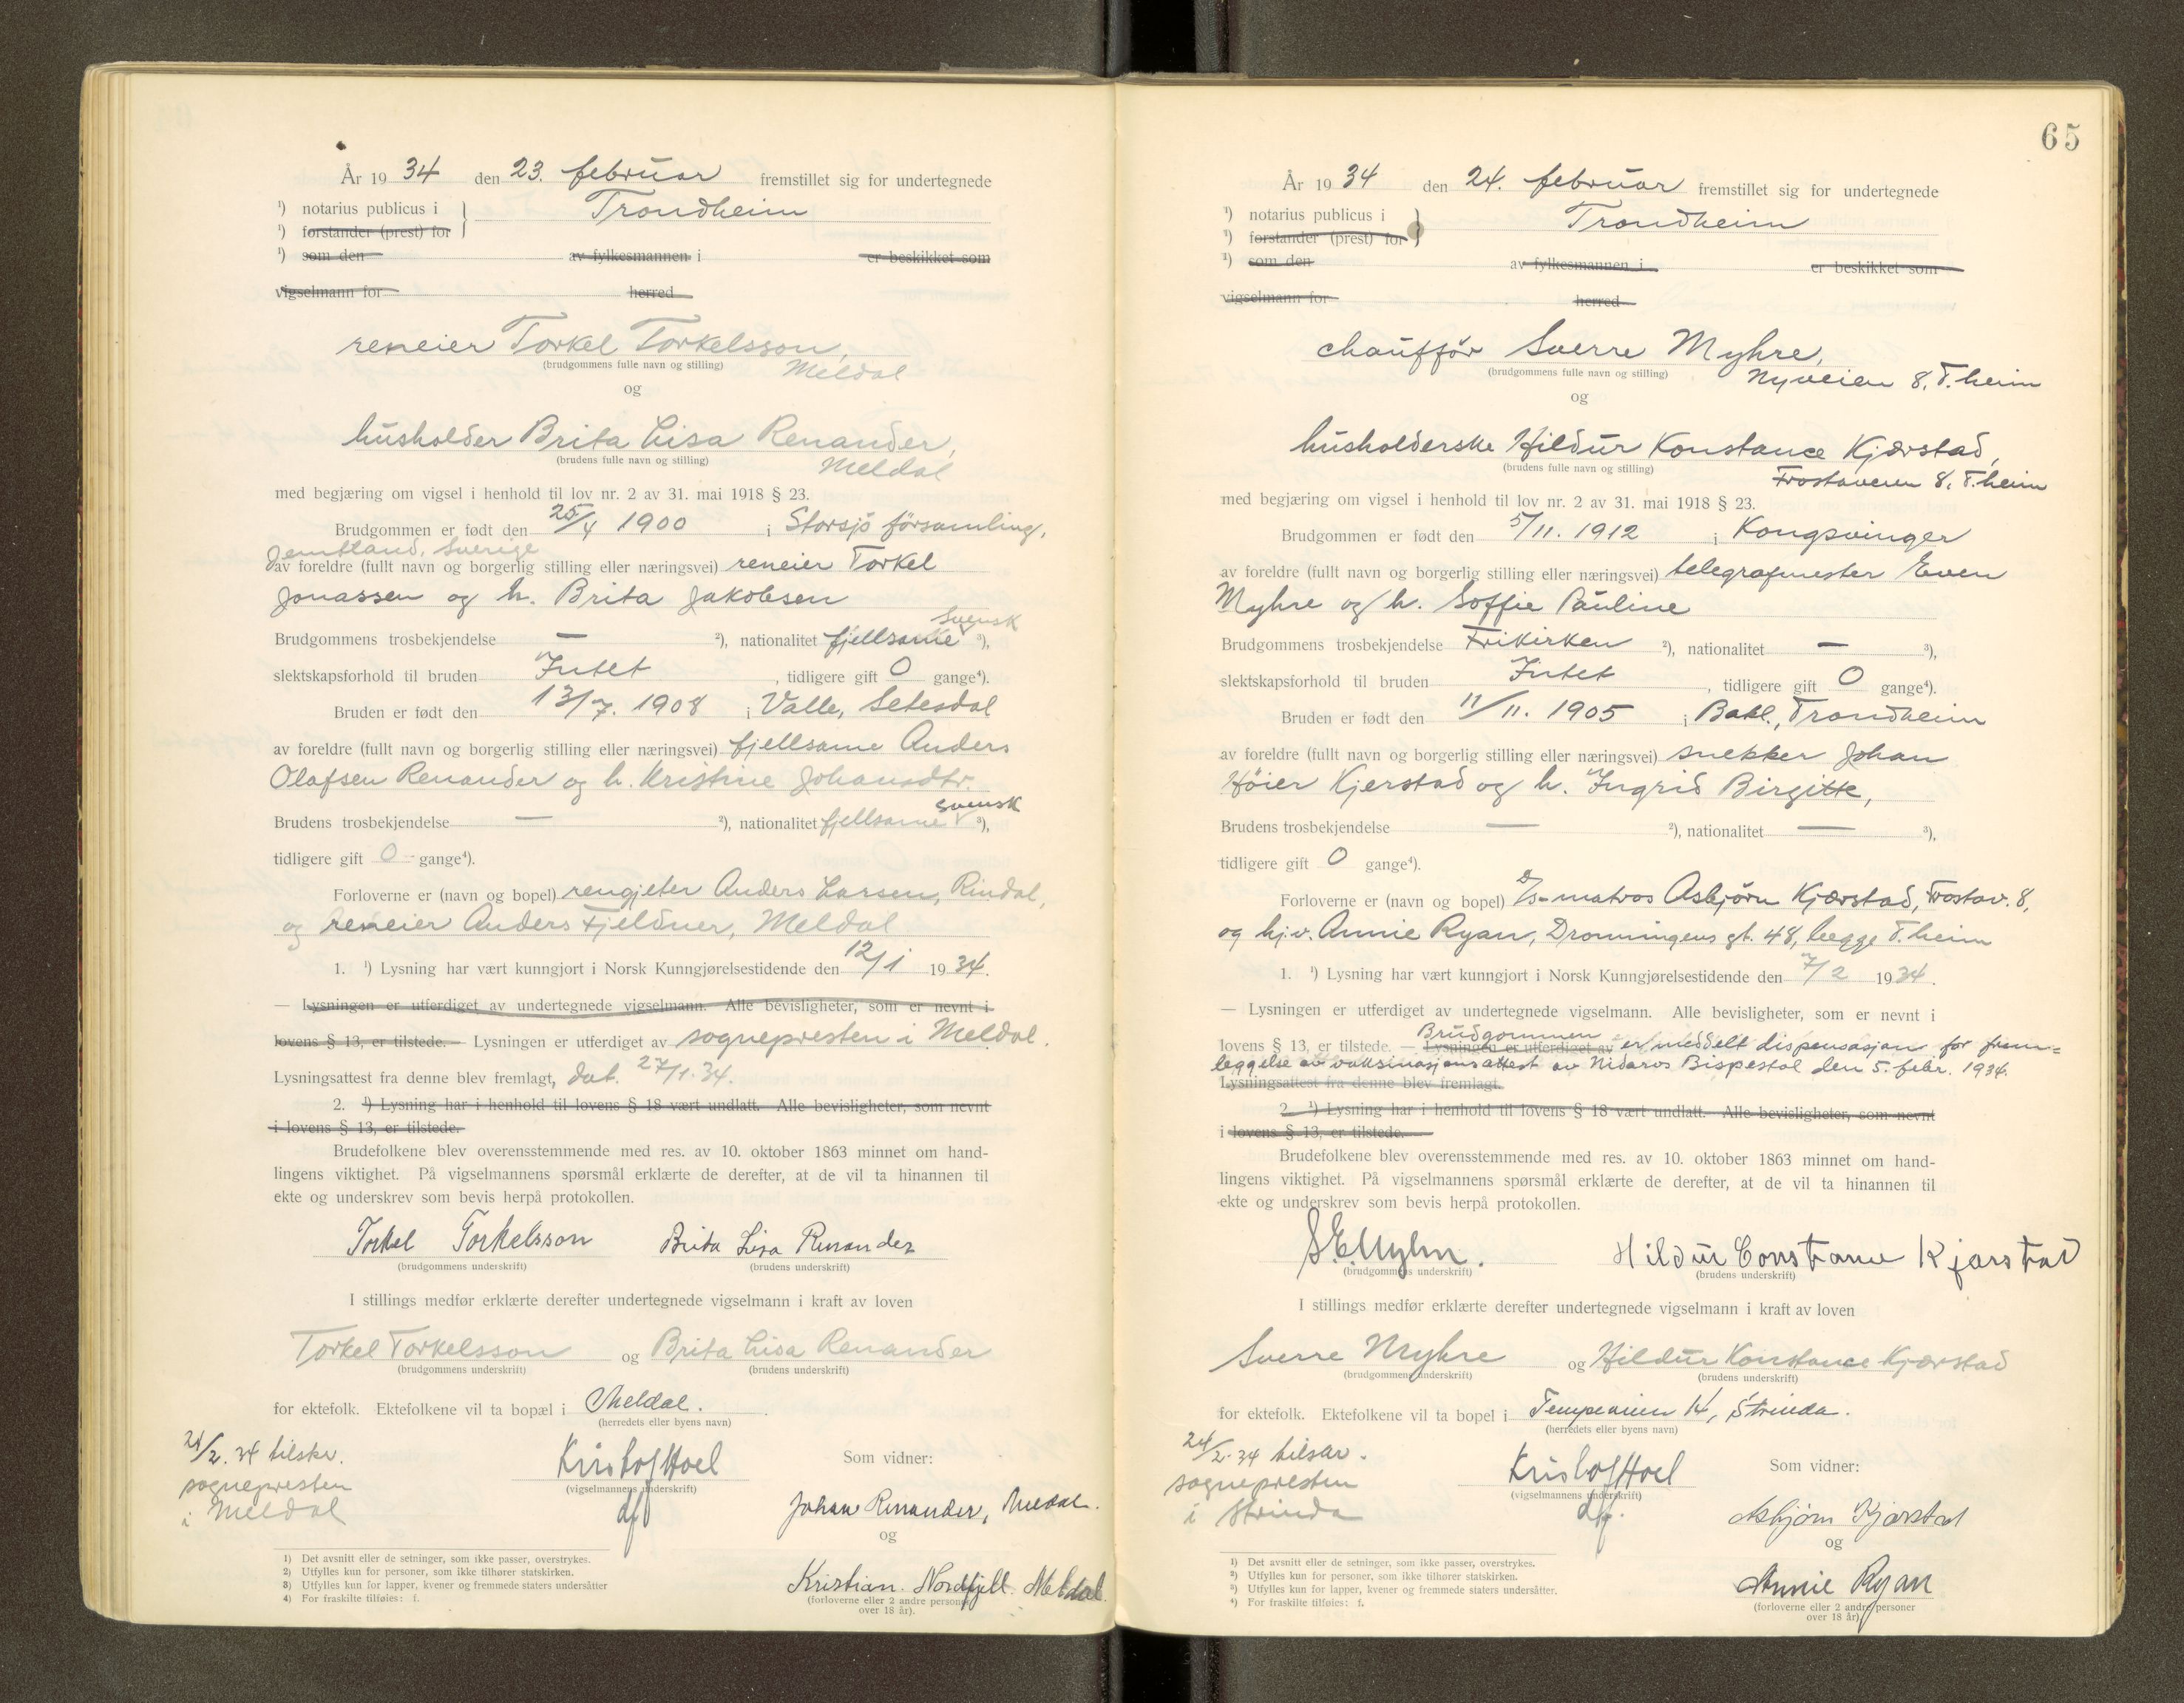 År 19 34 den 23. februar fremstillet sig for undertegnede
¹) notarius publicus i } Trondheim
¹) forstander (prest) for
¹) som den av fylkesmannen i er beskikket som
vigselmann for herred
reneier Torkel Torkelsson,
(brudgommens fulle navn og stilling) Meldal
og
husholder Brita Lisa Renander,
(brudens fulle navn og stilling) Meldal
med begjæring om vigsel i henhold til lov nr. 2 av 31. mai 1918 § 23.
Brudgommen er født den 25/4 1900 i Storsjö församling,
Jemtland, Sverige
av foreldre (fullt navn og borgerlig stilling eller næringsvei) reneier Torkel
Jonassen og h. Brita Jakobsen
svensk
Brudgommens trosbekjendelse — ²), nationalitet fjellsame ³),
slektskapsforhold til bruden Intet, tidligere gift 0 gange⁴).
Bruden er født den 13/7. 1908 i Valle, Setesdal
av foreldre (fullt navn og borgerlig stilling eller næringsvei) fjellsame Anders
Olafsen Renander og h. Kristine Johansdtr.
svensk
Brudens trosbekjendelse — ²), nationalitet fjellsame ³),
tidligere gift 0 gange⁴).
Forloverne er (navn og bopel) rengjeter Anders Larsen, Rindal,
og reneier Anders Fjeldner, Meldal
1. ¹) Lysning har vært kunngjort i Norsk Kunngjørelsestidende den 12/1 1934.
— Lysningen er utferdiget av undertegnede vigselmann. Alle bevisligheter, som er nevnt i
lovens § 13, er tilstede. — Lysningen er utferdiget av sognepresten i Meldal.
Lysningsattest fra denne blev fremlagt, dat. 27/1.34.
2. ¹) Lysning har i henhold til lovens § 18 vært undlatt. Alle bevisligheter, som nevnt
i lovens § 13, er tilstede.
Brudefolkene blev overensstemmende med res. av 10. oktober 1863 minnet om hand-
lingens viktighet. På vigselmannens spørsmål erklærte de derefter, at de vil ta hinannen til
ekte og underskrev som bevis herpå protokollen.
Torkel Torkelsson Brita Lisa Renander
(brudgommens underskrift) (brudens underskrift)
I stillings medfør erklærte derefter undertegnede vigselmann i kraft av loven
Torkel Torkelsson og Brita Lisa Renander
(brudgommens underskrift) (brudens underskrift)
for ektefolk. Ektefolkene vil ta bopæl i Meldal.
(herredets eller byens navn)
24/2.34 tilskr.
sognepresten
i Meldal
Kristof Hoel
(vigselmannens underskrift)
dfv
Som vidner:
Johan Renander, Meldal.
og
Kristian Nordfjell. Meldal
(forloverne eller 2 andre personer
over 18 år).
1) Det avsnitt eller de setninger, som ikke passer, overstrykes.
2) Utfylles kun for personer, som ikke tilhører statskirken.
3) Utfylles kun for lapper, kvener og fremmede staters undersåtter
4) For fraskilte tilføies: f.
65
År 19 34 den 24. februar fremstillet sig for undertegnede
¹) notarius publicus i } Trondheim
¹) forstander (prest) for
¹) som den av fylkesmannen i er beskikket som
vigselmann for herred
chauffør Sverre Myhre,
(brudgommens fulle navn og stilling) Nyveien 8, T.heim
og
husholderske Hildur Konstance Kjærstad,
(brudens fulle navn og stilling) Frostaveien 8, T.heim
med begjæring om vigsel i henhold til lov nr. 2 av 31. mai 1918 § 23.
Brudgommen er født den 5/11. 1912 i Kongsvinger
av foreldre (fullt navn og borgerlig stilling eller næringsvei) telegrafmester Even
Myhre og h. Soffie Pauline
Brudgommens trosbekjendelse Frikirken ²), nationalitet — ³),
slektskapsforhold til bruden Intet, tidligere gift 0 gange⁴).
Bruden er født den 11/11. 1905 i Bakl., Trondheim
av foreldre (fullt navn og borgerlig stilling eller næringsvei) snekker Johan
Høier Kjerstad og h. Ingrid Birgitte,
Brudens trosbekjendelse — ²), nationalitet — ³),
tidligere gift 0 gange⁴).
Forloverne er (navn og bopel) D/s-matros Asbjørn Kjærstad, Frostav. 8,
og hj.v. Annie Ryan, Dronningens gt. 48, begge T.heim
1. ¹) Lysning har vært kunngjort i Norsk Kunngjørelsestidende den 7/2 1934.
— Lysningen er utferdiget av undertegnede vigselmann. Alle bevisligheter, som er nevnt i
Brudgommen
lovens § 13, er tilstede. — Lysningen er utferdiget av er meddelt dispensasjon for frem-
leggelse av vaksinasjonsattest av Nidaros Bispestol den 5. febr. 1934.
Lysningsattest fra denne blev fremlagt.
2. ¹) Lysning har i henhold til lovens § 18 vært undlatt. Alle bevisligheter, som nevnt
i lovens § 13, er tilstede.
Brudefolkene blev overensstemmende med res. av 10. oktober 1863 minnet om hand-
lingens viktighet. På vigselmannens spørsmål erklærte de derefter, at de vil ta hinannen til
ekte og underskrev som bevis herpå protokollen.
S.E. Myhre. Hildur Constance Kjærstad
(brudgommens underskrift) (brudens underskrift)
I stillings medfør erklærte derefter undertegnede vigselmann i kraft av loven
Sverre Myhre og Hildur Konstance Kjærstad
(brudgommens underskrift) (brudens underskrift)
for ektefolk. Ektefolkene vil ta bopel i Tempeveien 14, Strinda.
(herredets eller byens navn)
24/2.34 tilskr.
sognepresten
i Strinda
Kristof Hoel
(vigselmannens underskrift)
dfv.
Som vidner:
Asbjørn Kjærstad
og
Annie Ryan
(forloverne eller 2 andre personer
over 18 år).
¹) Det avsnitt eller de setninger, som ikke passer, overstrykes.
²) Utfylles kun for personer, som ikke tilhører statskirken.
³) Utfylles kun for lapper, kvener og fremmede staters undersåtter.
⁴) For fraskilte tilføies: f.